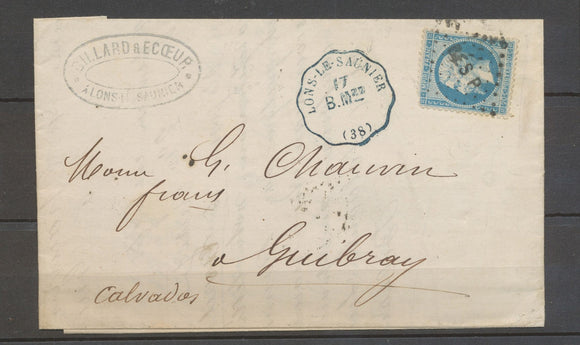 BILLARD & ECOEUR
A LONS-LE-SAUNIER
LONS-LE-SAUNIER
17
B.Mzz
(38)
Monsr G. Chauvin
frans
a Guibray
Calvados